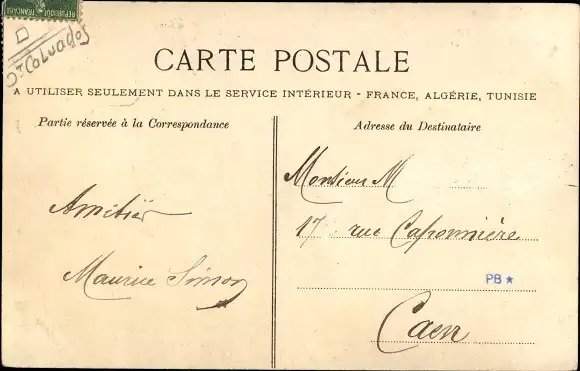 RÉPUBLIQUE FRANÇAISE
Dt Calvados
CARTE POSTALE
A UTILISER SEULEMENT DANS LE SERVICE INTÉRIEUR - FRANCE, ALGÉRIE, TUNISIE
Partie réservée à la Correspondance
Adresse du Destinataire
Amitiés
Maurice Simon
Monsieur M
17 rue Caponnière
PB★
Caen